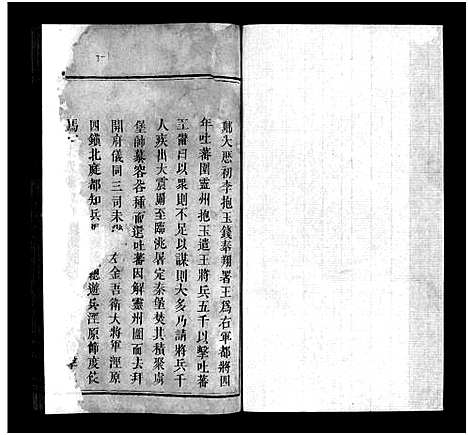 鄭大歷初李抱玉鎮奉翔署王爲右軍都將四
年吐蕃圍靈州抱玉遣王將兵五千以擊吐蕃
王嘗曰以衆則不足以謀則大多乃請將兵千
人疾出大震關至臨洮屠定秦堡焚其積聚虜
堡帥慕容谷種而還吐蕃因解靈州圍而去拜
開府儀同三司未 金吾衛大將軍涇原
四鎮北庭都知兵 總遊兵涇原節度使
馬